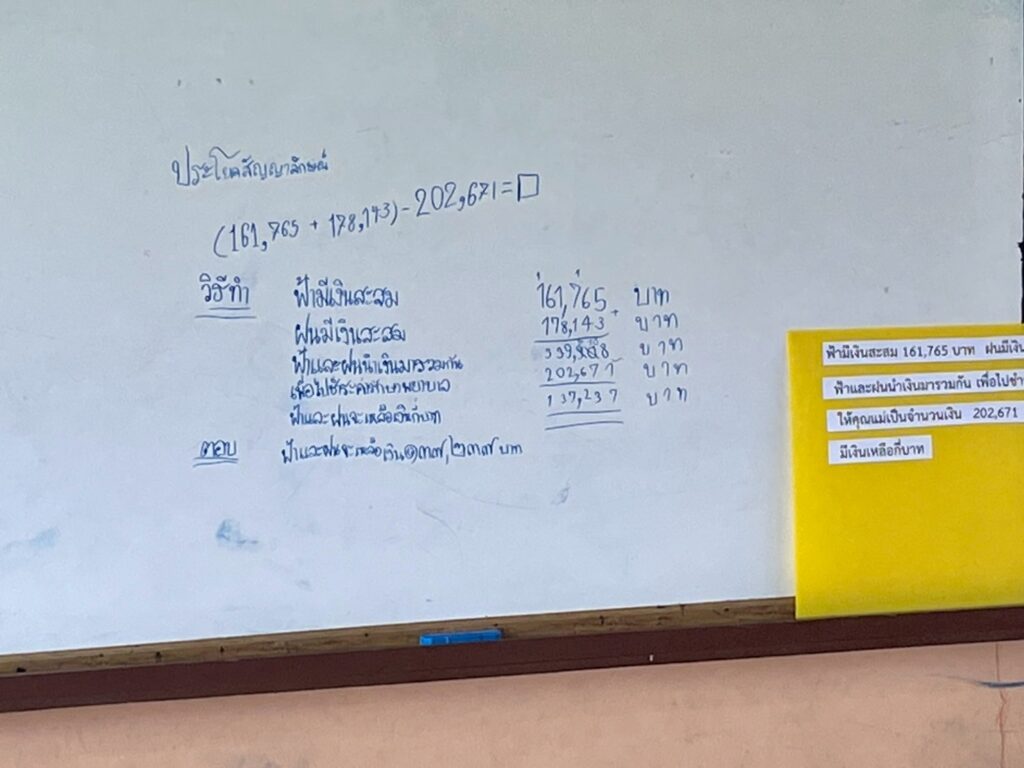 ประโยคสัญญาลักษณ์
(161,765 + 178,143) - 202,671 = □
วิธีทำ ฟ้ามีเงินสะสม 161,765 บาท
ฝนมีเงินสะสม 178,143 + บาท
ฟ้าและฝนนำเงินมารวมกัน 339,908 บาท
เพื่อไปชำระค่ารักษาพยาบาล 202,671 บาท
ฟ้าและฝนจะเหลือเงินกี่บาท 137,237 บาท
ตอบ ฟ้าและฝนจะเหลือเงิน ๑๓๗,๒๓๗ บาท
ฟ้ามีเงินสะสม 161,765 บาท ฝนมีเงิน
ฟ้าและฝนนำเงินมารวมกัน เพื่อไปชำ
ให้คุณแม่เป็นจำนวนเงิน 202,671
มีเงินเหลือกี่บาท